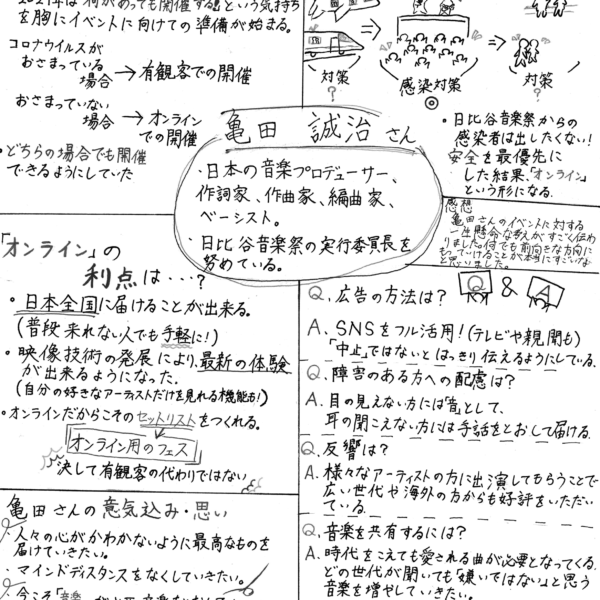 2021年は「何があっても開催する」という気持ち
を胸にイベントに向けての準備が始まる。
コロナウイルスが
おさまっている
場合→有観客での開催
おさまっていない
場合→オンライン
での開催
・どちらの場合でも開催
できるようにしていた
対策
?
感染対策
◎
対策
?
・日比谷音楽祭からの
感染者は出したくない!
安全を最優先に
した結果、「オンライン」
という形になる。
亀田 誠治さん
・日本の音楽プロデューサー、
作詞家、作曲家、編曲家、
ベーシスト。
・日比谷音楽祭の実行委員長を
努めている。
感想
亀田さんのイベントに対する
一生懸命な考えがすごく伝わ
りました。何でも前向きな方向に
もっていけることが本当にすごいな
と思いました。
「オンライン」の
利点は・・・?
・日本全国に届けることが出来る。
(普段来れない人でも手軽に!)
・映像技術の発展により、最新の体験
が出来るようになった。
(自分の好きなアーティストだけを見れる機能も!)
・オンラインだからこそのセットリストをつくれる。
オンライン用のフェス
決して有観客の代わりではない
亀田さんの意気込み・思い
・人々の心がかわかないように最高なものを
届けていきたい。
・マインドディスタンスをなくしていきたい。
・今こそ「音楽
Q & A
Q、広告の方法は?
A、SNSをフル活用!(テレビや新聞も)
「中止」ではないとはっきり伝えるようにしている。
Q、障害のある方への配慮は?
A、目の見えない方には「音」として、
耳の聞こえない方には手話をとおして届ける。
Q、反響は?
A、様々なアーティストの方に出演してもらうことで
広い世代や海外の方からも好評をいただい
ている。
Q、音楽を共有するには?
A、時代をこえても愛される曲が必要となってくる。
どの世代が聞いても「嫌いではない」と思う
音楽を増やしていきたい。